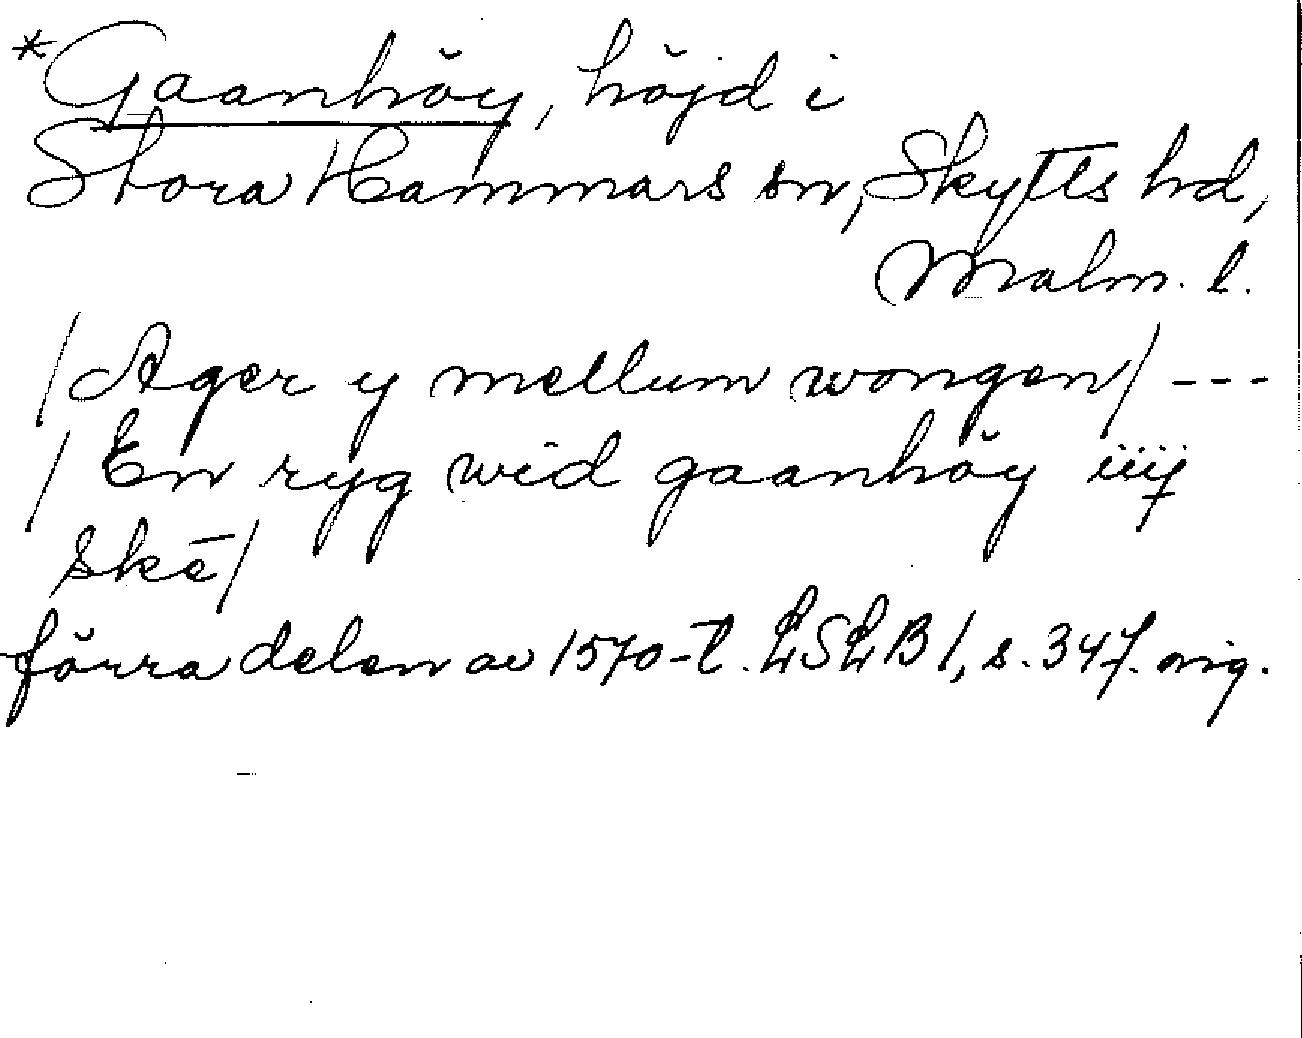 *Gaanhöy, höjd i
Stora Hammars sn, Skytts hd,
Malm. l.
/Ager y mellum wongen/ ---
/En ryg wid gaanhöy iiij
skē/
förra delen av 1570-t. LSLB 1, s. 347. orig.